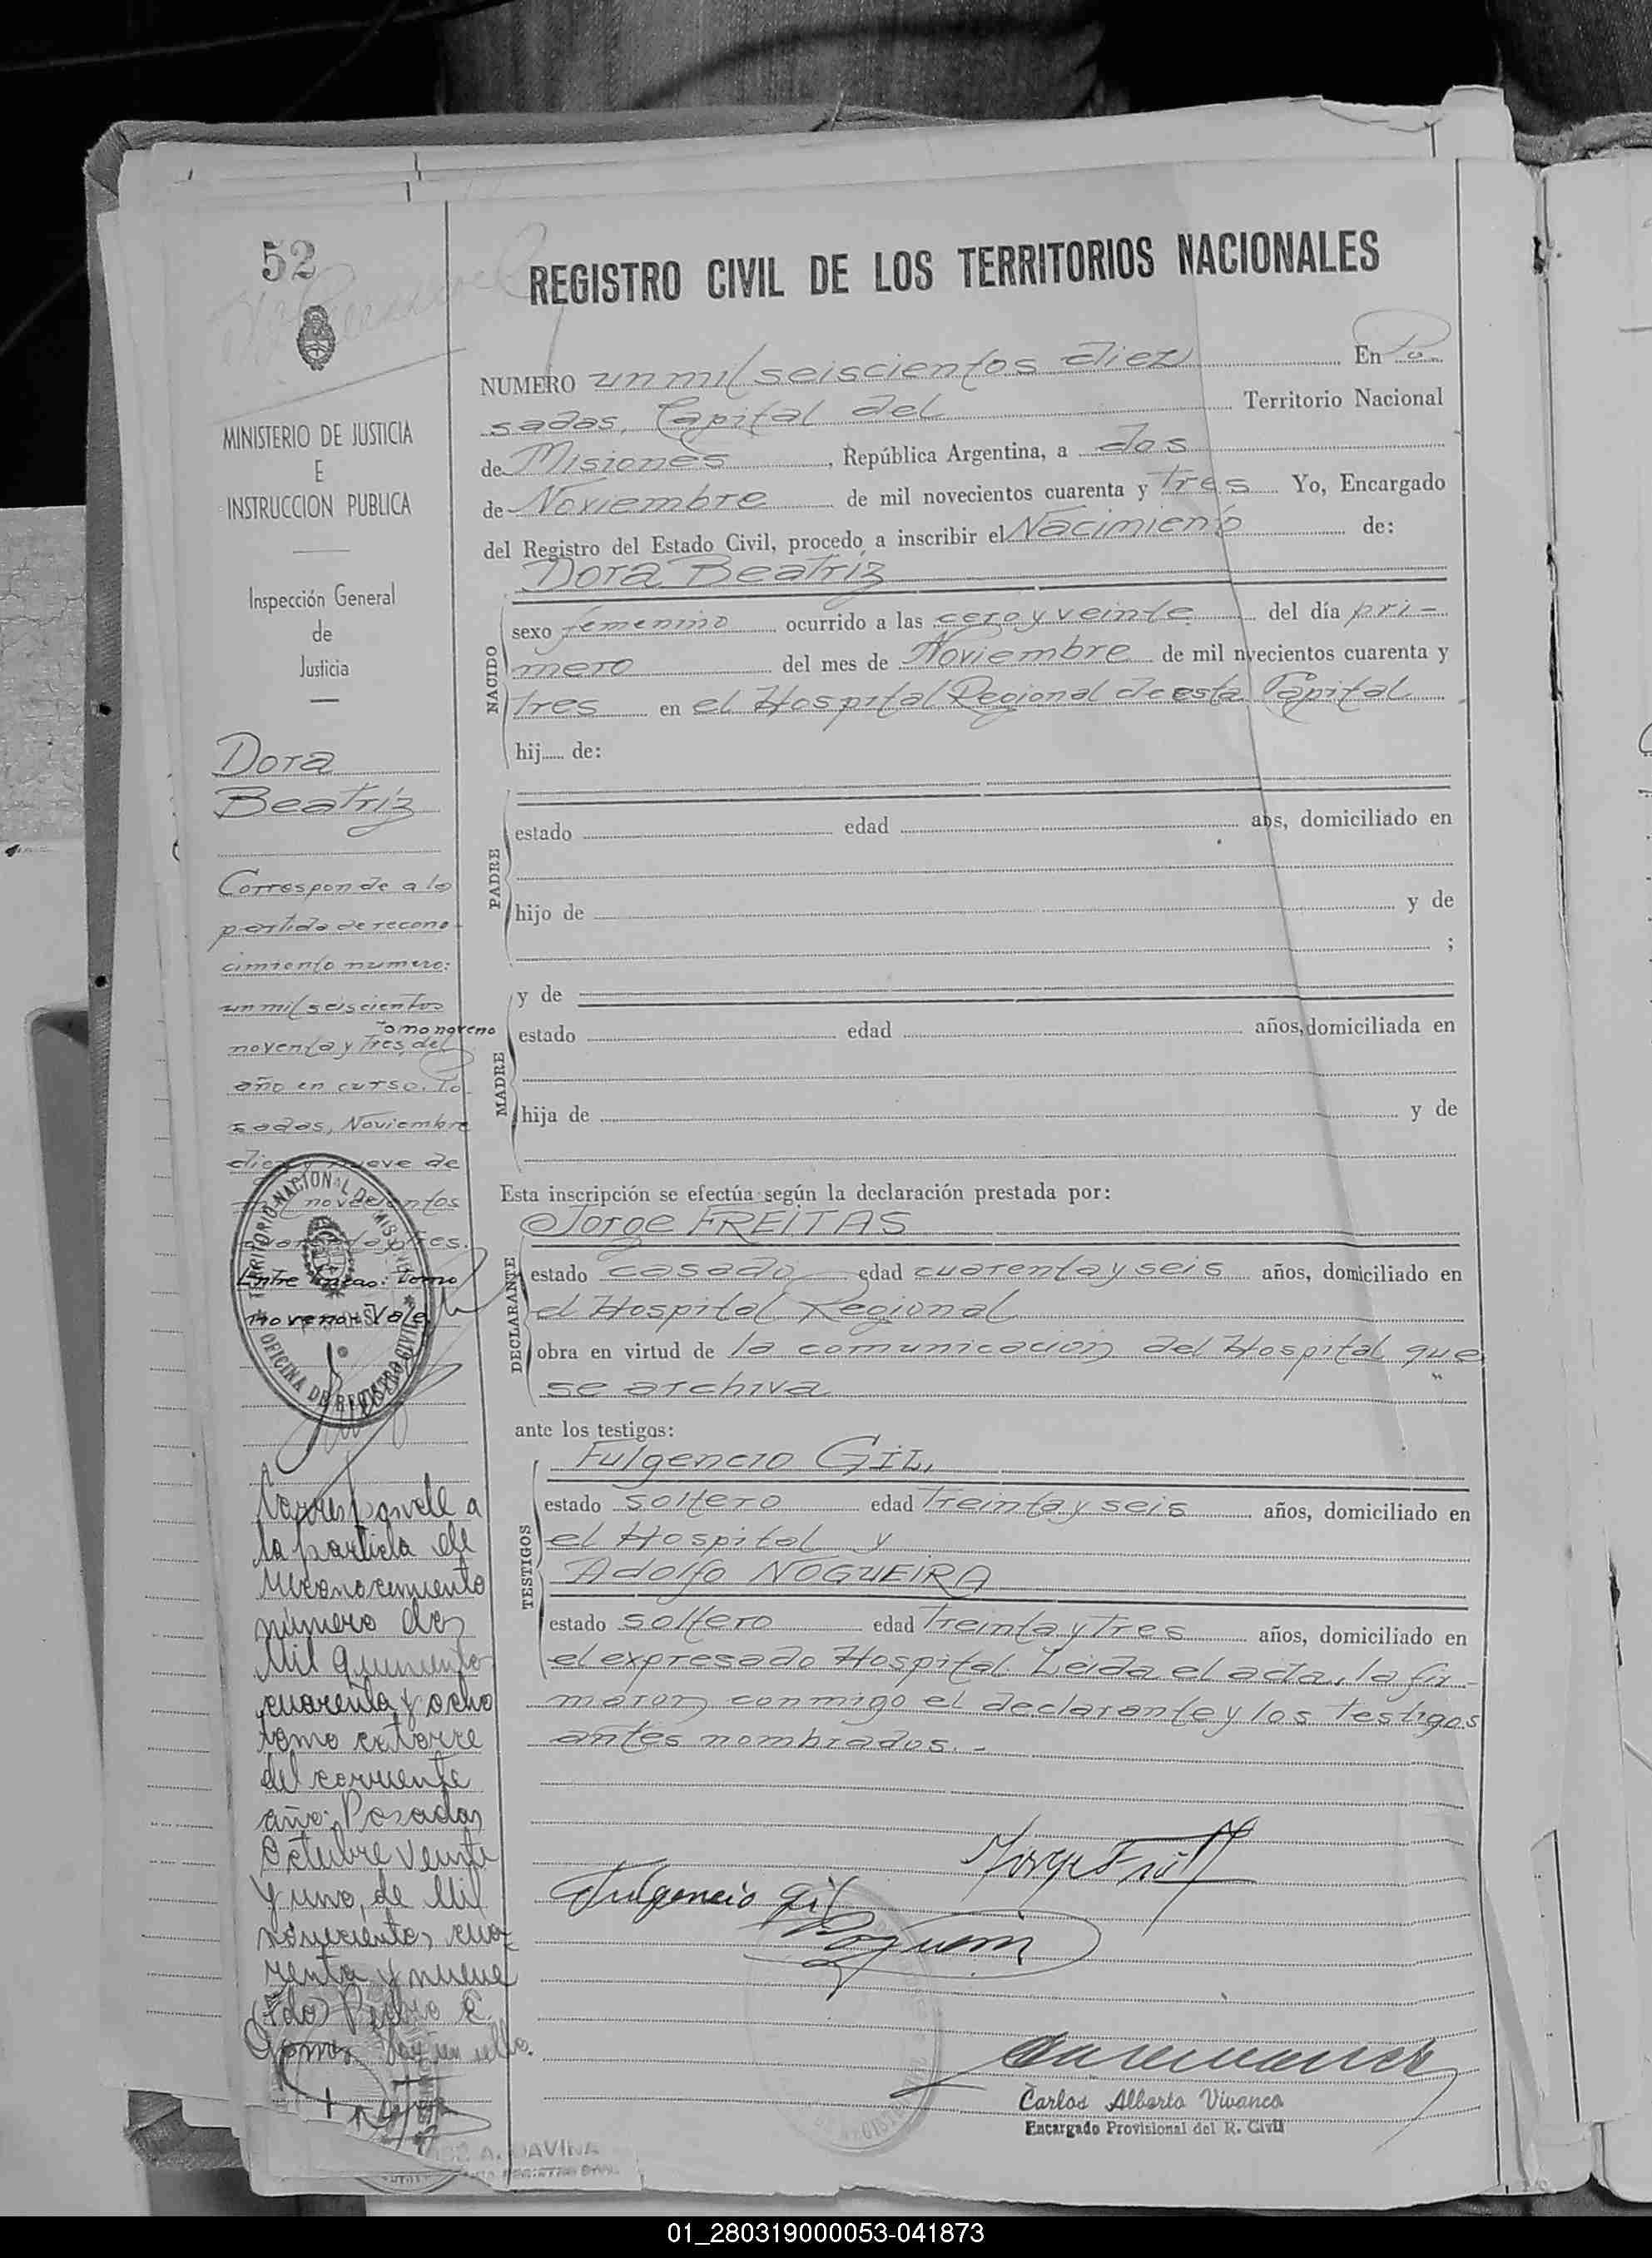 52
MINISTERIO DE JUSTICIA
E
INSTRUCCION PUBLICA
Inspección General
de
Justicia
Dora
Beatriz
Corresponde a la
partida de recono-
cimiento numero:
un mil seiscientos
tomo noveno
noventa y tres, del
año en curso. Po-
sadas, Noviembre
diez y nueve de
mil novecientos
cuarenta y tres.
Entre líneas: tomo
noveno: Vale
TERRITORIO NACIONAL DE MISIONES
OFICINA DE REGISTRO CIVIL
Corresponde a
la partida de
reconocimiento
número dos
mil quinientos
cuarenta y ocho
tomo catorce
del corriente
año. Posadas
Octubre veinte
y uno de mil
novecientos cua-
renta y nueve
(Fdo) Pedro E.
Gomez Hay un sello.
A. DAVIÑA
REGISTRO CIVIL DE LOS TERRITORIOS NACIONALES
NUMERO un mil seiscientos diez En Po-
sadas, Capital del Territorio Nacional
de Misiones, República Argentina, a dos
de Noviembre de mil novecientos cuarenta y tres Yo, Encargado
del Registro del Estado Civil, procedo a inscribir el Nacimiento de:
Dora Beatriz
NACIDO
sexo femenino ocurrido a las cero y veinte del día pri-
mero del mes de Noviembre de mil nvecientos cuarenta y
tres en el Hospital Regional de esta Capital
hij..... de:
PADRE
estado edad años, domiciliado en
hijo de y de
;
y de
MADRE
estado edad años, domiciliada en
hija de y de
Esta inscripción se efectúa según la declaración prestada por:
Jorge FREITAS
DECLARANTE
estado casado edad cuarenta y seis años, domiciliado en
el Hospital Regional
obra en virtud de la comunicación del Hospital que
se archiva
ante los testigos:
Fulgencio GIL,
TESTIGOS
estado soltero edad treinta y seis años, domiciliado en
el Hospital y
Adolfo NOGUEIRA
estado soltero edad treinta y tres años, domiciliado en
el expresado Hospital. Leida el acta, la fir-
maron conmigo el declarante y los testigos
antes nombrados.-
Jorge Freit
Fulgencio Gil
Nogueira
Carlos Alberto Vivanco
Encargado Provisional del R. Civil
01_280319000053-041873